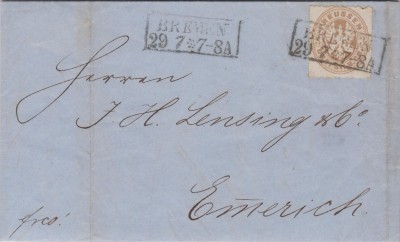 BREMEN
29 7 * 7-8A
BREMEN
29 7 * 7-8A
Herren
J. H. Lensing & Co.
Emmerich.
frco.